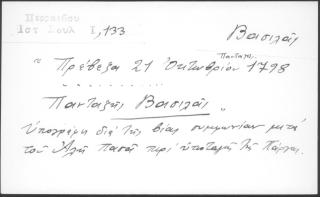 Περραιβού
Ιστ Σουλ Ι, 133
Βασιλᾶς
Πανταζῆς
" Πρέβεζα 21 Ὀκτωβρίου 1798
. . . . . . . . .
Πανταζῆς Βασιλᾶς "
Ὑπογράφει διὰ τῆς βίας συμφωνίαν μετὰ
τοῦ Ἀλῆ Πασᾶ περὶ ὑποταγῆς τῆς Πάργας.